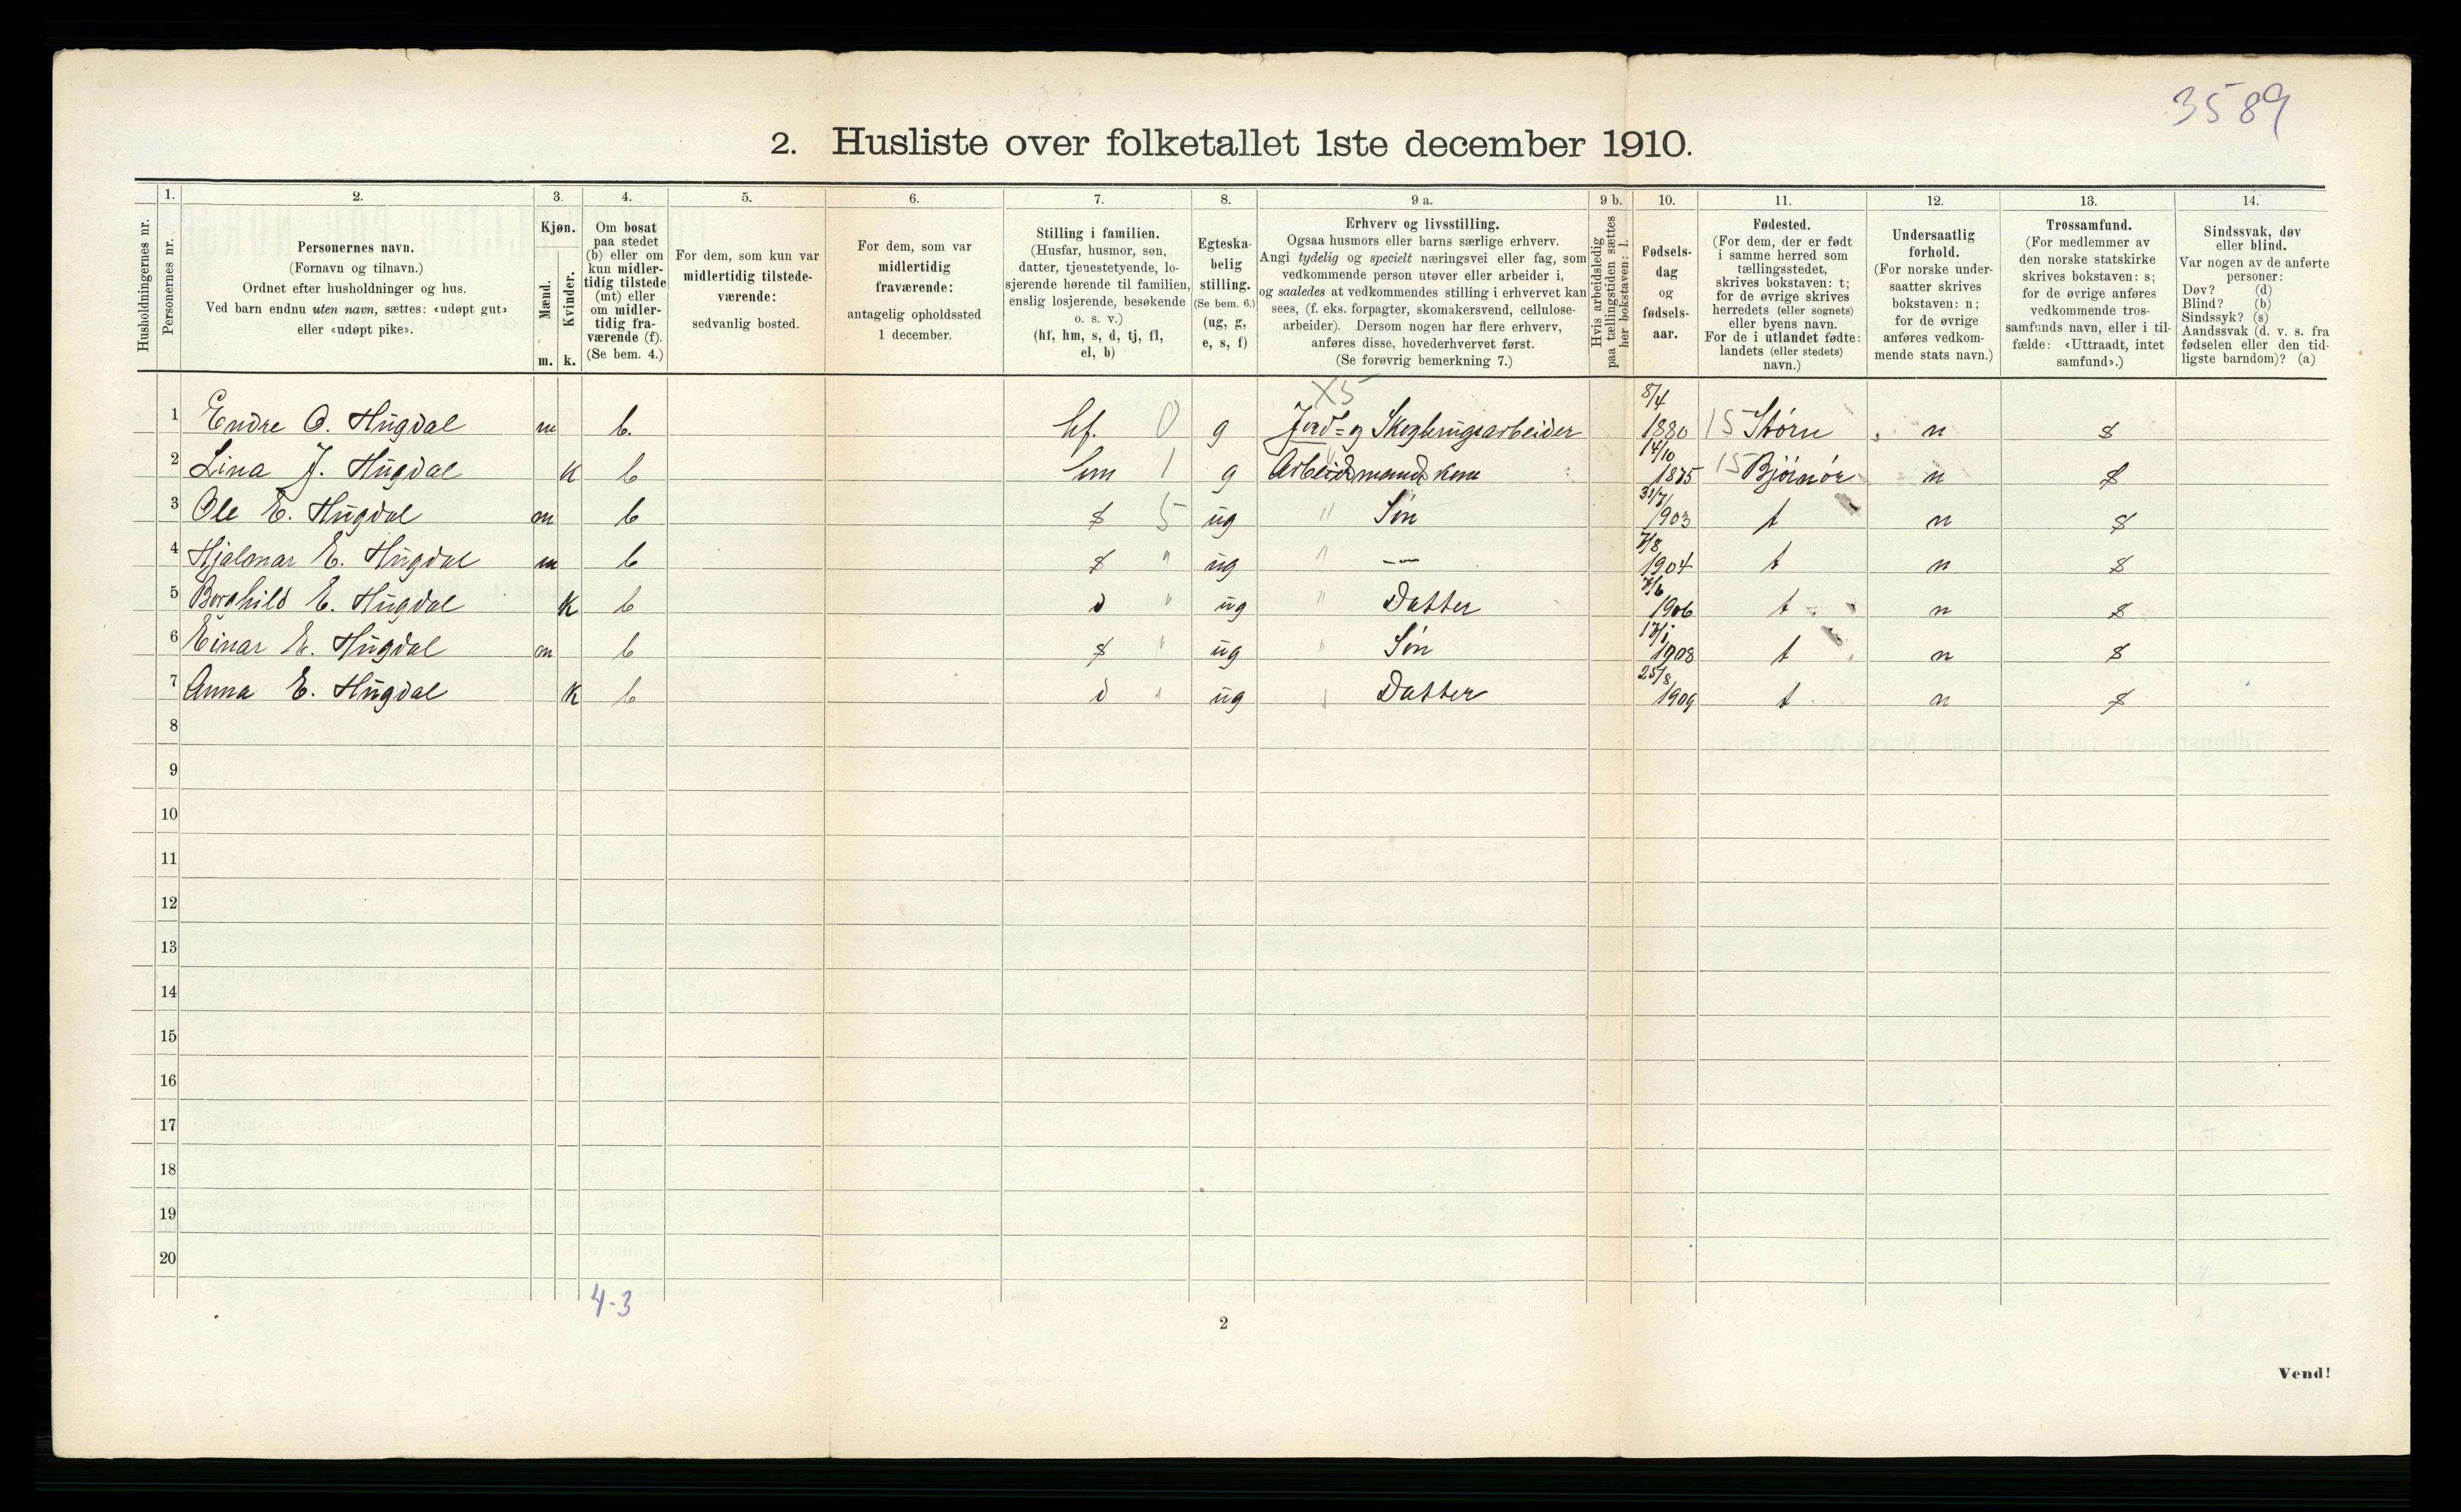 3589
2. Husliste over folketallet 1ste december 1910.
Husholdningernes nr.
1.
Personernes nr.
2.
Personernes navn.
(Fornavn og tilnavn.)
Ordnet efter husholdninger og hus.
Ved barn endnu uten navn, sættes: «udøpt gut»
eller «udøpt pike».
3.
Kjøn.
Mænd.
Kvinder.
m. k.
4.
Om bosat
paa stedet
(b) eller om
kun midler-
tidig tilstede
(mt) eller
om midler-
tidig fra-
værende (f).
(Se bem. 4.)
5.
For dem, som kun var
midlertidig tilstede-
værende:
sedvanlig bosted.
6.
For dem, som var
midlertidig
fraværende:
antagelig opholdssted
1 december.
7.
Stilling i familien.
(Husfar, husmor, søn,
datter, tjenestetyende, lo-
sjerende hørende til familien,
enslig losjerende, besøkende
o. s. v.)
(hf, hm, s, d, tj, fl,
el, b)
8.
Egteska-
belig
stilling.
(Se bem. 6.)
(ug, g,
e, s, f)
9 a.
Erhverv og livsstilling.
Ogsaa husmors eller barns særlige erhverv.
Angi tydelig og specielt næringsvei eller fag, som
vedkommende person utøver eller arbeider i,
og saaledes at vedkommendes stilling i erhvervet kan
sees, (f. eks. forpagter, skomakersvend, cellulose-
arbeider). Dersom nogen har flere erhverv,
anføres disse, hovederhvervet først.
(Se forøvrig bemerkning 7.)
9 b.
Hvis arbeidsledig
paa tællingstiden sættes
her bokstaven: l.
10.
Fødsels-
dag
og
fødsels-
aar.
11.
Fødested.
(For dem, der er født
i samme herred som
tællingsstedet,
skrives bokstaven: t;
for de øvrige skrives
herredets (eller sognets)
eller byens navn.
For de i utlandet fødte:
landets (eller stedets)
navn.)
12.
Undersaatlig
forhold.
(For norske under-
saatter skrives
bokstaven: n;
for de øvrige
anføres vedkom-
mende stats navn.)
13.
Trossamfund.
(For medlemmer av
den norske statskirke
skrives bokstaven: s;
for de øvrige anføres
vedkommende tros-
samfunds navn, eller i til-
fælde: «Uttraadt, intet
samfund».)
14.
Sindssvak, døv
eller blind.
Var nogen av de anførte
personer:
Døv? (d)
Blind? (b)
Sindssyk? (s)
Aandssvak (d. v. s. fra
fødselen eller den tid-
ligste barndom)? (a)
X5
1 Endre O. Hugdal m b. hf. 0 g Jord= og Skogbrugsarbeider 8/4 1880 15 Störn n s
2 Lina J. Hugdal k b hm 1 g Arbeidsmands kone 14/10 1875 15 Bjørnør n s
3 Ole E. Hugdal m b s 5 ug " Søn 31/7 1903 t n s
4 Hjalmar E. Hugdal m b s " ug " — 7/8 1904 t n s
5 Borghild E. Hugdal k b d " ug " Datter 7/6 1906 t n s
6 Einar E. Hugdal m b s " ug " Søn 17/1 1908 t n s
7 Anna E. Hugdal k b d " ug " Datter 25/8 1909 t n s
8
9
10
11
12
13
14
15
16
17
18
19
20
4-3
2
Vend!